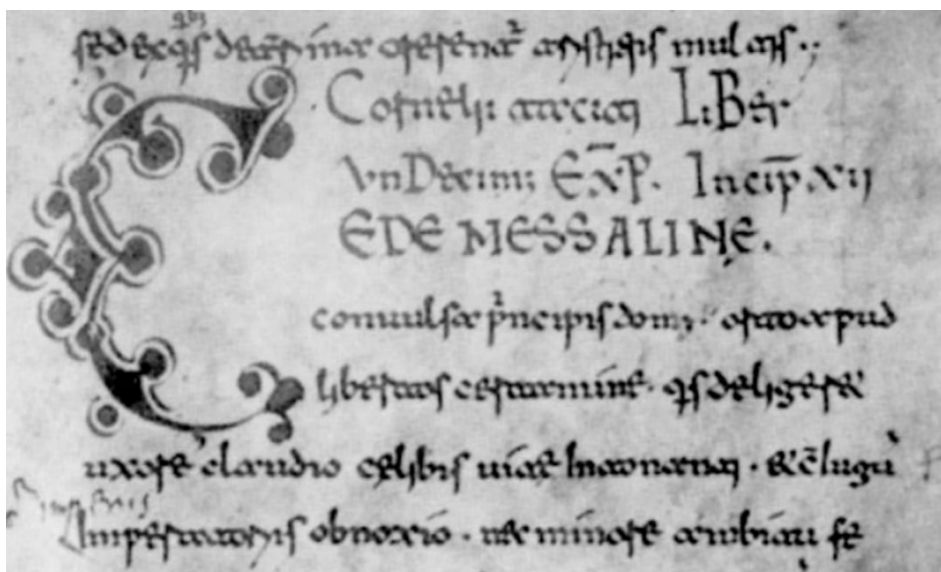 sed ex q¹s deterrima orerent᷑ tristitiis multis ·,
Cornelii taciti LiBer
vnDecimus EXP̄. Incip̄. xii
CEDE MESSALINE.
conuulsa p¹ncipis domu· orto apud
libertos certamine· q¹s deligere&
uxore claudio celibis uitae Intoleranti· & c̄iugu
Imperatoriis obnoxio· nec minore ambitu fe